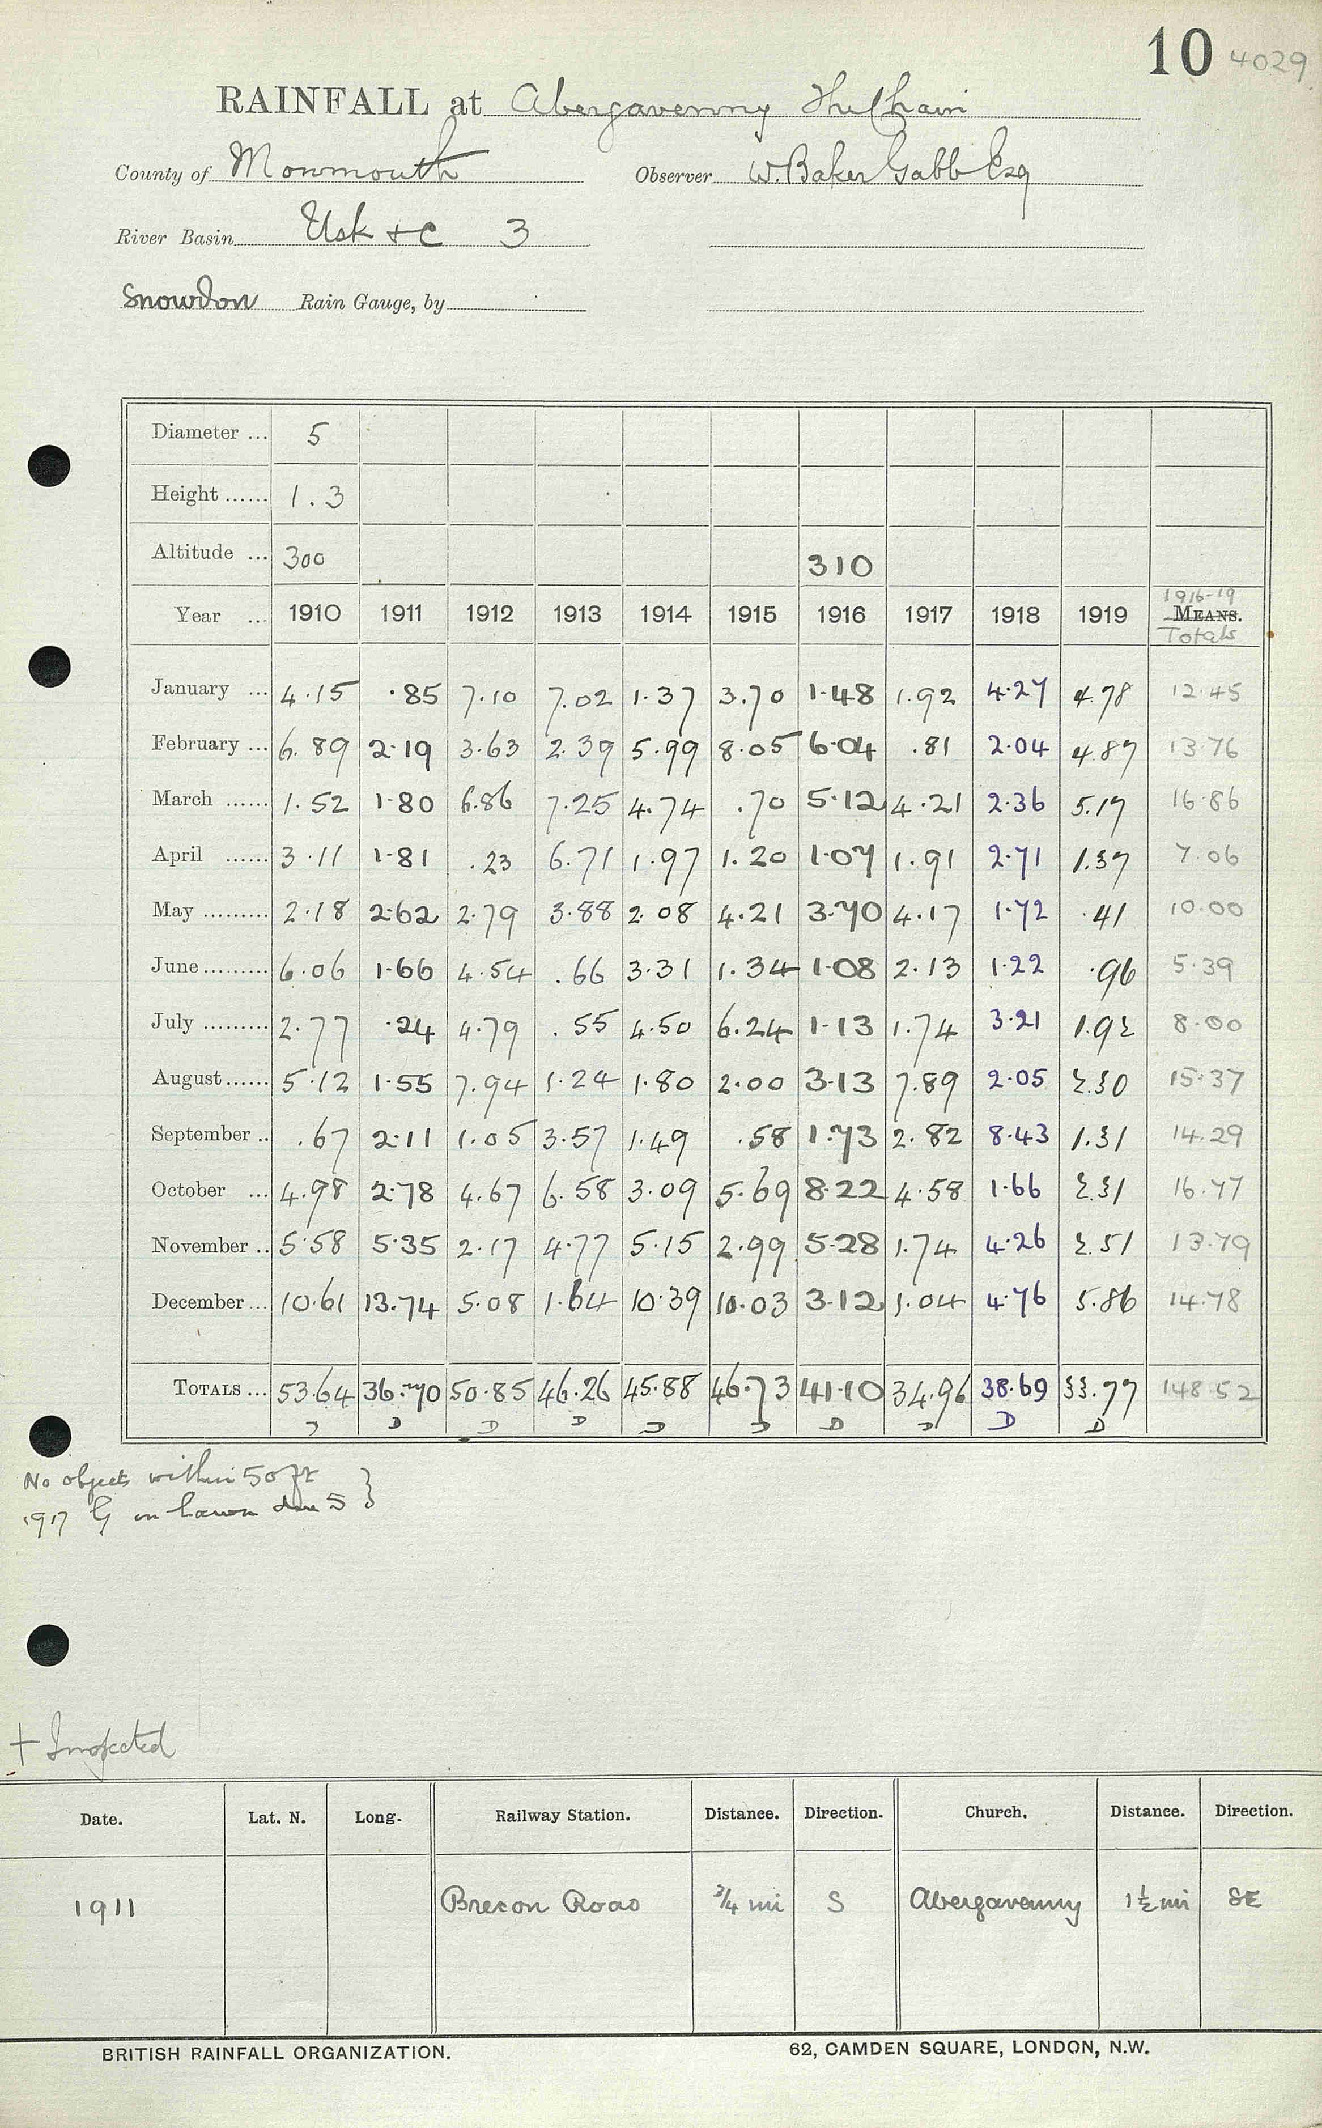 10 4029
RAINFALL at Abergavenny
County of Monmouth Observer W. Baker Gabb Esq
River Basin Usk +c 3
Snowdon Rain Gauge, by
Diameter ... 5
Height ...... 1.3
Altitude ... 300 310
Year ... 1910 1911 1912 1913 1914 1915 1916 1917 1918 1919 1916-19 MEANS. Totals
January ... 4.15 .85 7.10 7.02 1.37 3.70 1.48 1.92 4.27 4.78 12.45
February ... 6.89 2.19 3.63 2.39 5.99 8.05 6.04 .81 2.04 4.87 13.76
March ...... 1.52 1.80 6.86 7.25 4.74 .70 5.12 4.21 2.36 5.17 16.86
April ...... 3.11 1.81 .23 6.71 1.97 1.20 1.07 1.91 2.71 1.37 7.06
May ......... 2.18 2.62 2.79 3.88 2.08 4.21 3.70 4.17 1.72 .41 10.00
June ......... 6.06 1.66 4.54 .66 3.31 1.34 1.08 2.13 1.22 .96 5.39
July ......... 2.77 .24 4.79 .55 4.50 6.24 1.13 1.74 3.21 1.92 8.00
August ...... 5.12 1.55 7.94 1.24 1.80 2.00 3.13 7.89 2.05 2.30 15.37
September .. .67 2.11 1.05 3.57 1.49 .58 1.73 2.82 8.43 1.31 14.29
October ... 4.98 2.78 4.67 6.58 3.09 5.69 8.22 4.58 1.66 2.31 16.77
November .. 5.58 5.35 2.17 4.77 5.15 2.99 5.28 1.74 4.26 2.51 13.79
December ... 10.61 13.74 5.08 1.64 10.39 10.03 3.12 1.04 4.76 5.86 14.78
TOTALS ... 53.64 36.70 50.85 46.26 45.88 46.73 41.10 34.96 38.69 33.77 148.52
D D D D D D D D D D
No objects within 50 ft }
1917 G on lawn 5
+ Inspected
Date. Lat. N. Long. Railway Station. Distance. Direction. Church. Distance. Direction.
1911 Brecon Road 3/4 mi S Abergavenny 1½ mi SE
BRITISH RAINFALL ORGANIZATION. 62, CAMDEN SQUARE, LONDON, N.W.